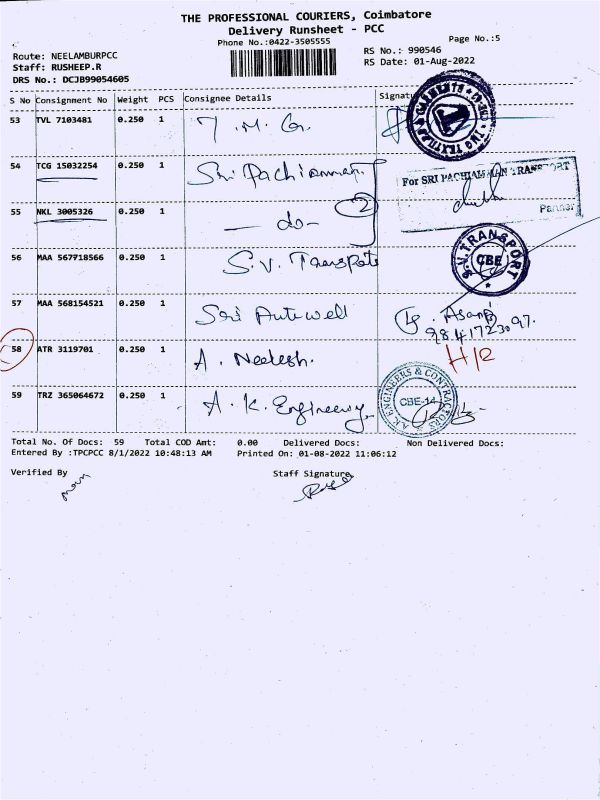 THE PROFESSIONAL COURIERS, Coimbatore
Delivery Runsheet - PCC
Phone No.:0422-3505555
Page No.:5
Route: NEELAMBURPCC
RS No.: 990546
Staff: RUSHEEP.R
RS Date: 01-Aug-2022
DRS No.: DCJB99054605
S No Consignment No Weight PCS Consignee Details Signatu
53 TVL 7103481 0.250 1 T.M.G.
54 TCG 15032254 0.250 1 Sri Pachiamman
For SRI PACHIAMMAN TRANSPORT
Partner
55 NKL 3005326 0.250 1 - do - 2
56 MAA 567718566 0.250 1 S.V. Transports
S.V. TRANSPORT
CBE
57 MAA 568154521 0.250 1 Sri Autowell
9841723097.
58 ATR 3119701 0.250 1 A. Neelesh.
59 TRZ 365064672 0.250 1 A.K. Engineering
A.K. ENGINEERS & CONTRACTORS
CBE-14
Total No. Of Docs: 59 Total COD Amt: 0.00 Delivered Docs: Non Delivered Docs:
Entered By :TPCPCC 8/1/2022 10:48:13 AM Printed On: 01-08-2022 11:06:12
Verified By
Staff Signature